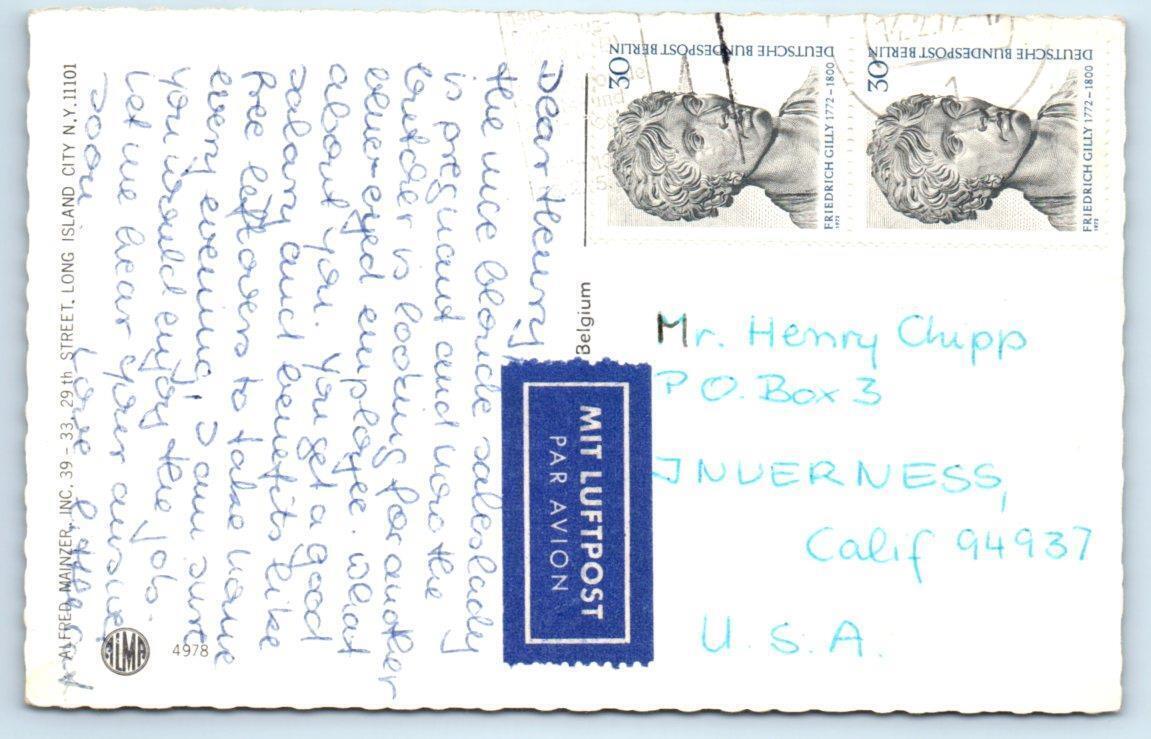 Dear Henry,
the nice blonde saleslady
is pregnant and now the
butcher is looking for another
clever-eyed employee. What
about you. You get a good
salary and benefits like
free leftovers to take home
every evening. I am sure
you would enjoy the job.
Let me hear your answer
soon. Love
ALFRED MAINZER, INC. 39 - 33, 29th STREET, LONG ISLAND CITY N.Y. 11101
ALMA
4978
Belgium
MIT LUFTPOST
PAR AVION
30
DEUTSCHE BUNDESPOST BERLIN
FRIEDRICH GILLY 1772-1800
1972
30
DEUTSCHE BUNDESPOST BERLIN
FRIEDRICH GILLY 1772-1800
1972
Mr. Henry Chipp
P.O. Box 3
INVERNESS,
Calif 94937
U.S.A.